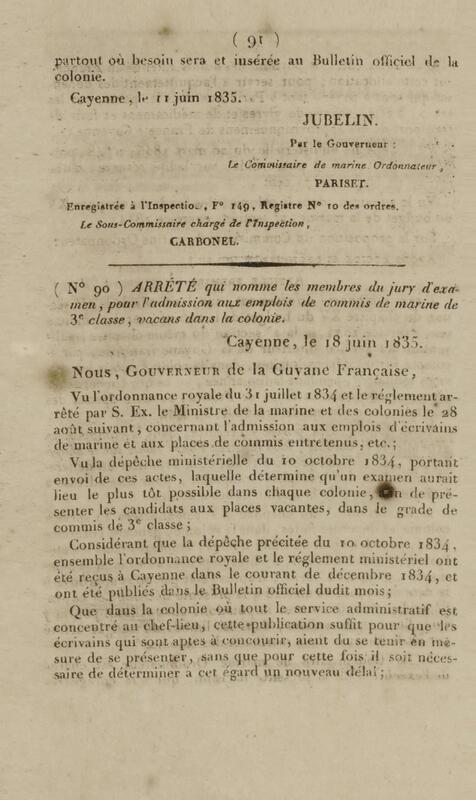 ( 91 )
partout où besoin sera et insérée au Bulletin officiel de la
colonie.
Cayenne, le 11 juin 1835.
JUBELIN.
Par le Gouverneur :
Le Commissaire de marine Ordonnateur,
PARISET.
Enregistrée à l'Inspection, F° 149, Registre N° 10 des ordres.
Le Sous-Commissaire chargé de l'Inspection,
CARBONEL.
( N° 90 ) ARRÊTÉ qui nomme les membres du jury d'exa-
men, pour l'admission aux emplois de commis de marine de
3e classe, vacans dans la colonie.
Cayenne, le 18 juin 1835.
Nous, GOUVERNEUR de la Guyane Française,
Vu l'ordonnance royale du 31 juillet 1834 et le réglement ar-
rêté par S. Ex. le Ministre de la marine et des colonies le 28
août suivant, concernant l'admission aux emplois d'écrivains
de marine et aux places de commis entretenus, etc.;
Vu la dépêche ministérielle du 10 octobre 1834, portant
envoi de ces actes, laquelle détermine qu'un examen aurait
lieu le plus tôt possible dans chaque colonie, afin de pré-
senter les candidats aux places vacantes, dans le grade de
commis de 3e classe;
Considérant que la dépêche précitée du 10 octobre 1834,
ensemble l'ordonnance royale et le réglement ministériel ont
été reçus à Cayenne dans le courant de décembre 1834, et
ont été publiés dans le Bulletin officiel dudit mois;
Que dans la colonie où tout le service administratif est
concentré au chef-lieu, cette publication suffit pour que les
écrivains qui sont aptes à concourir, aient du se tenir en me-
sure de se présenter, sans que pour cette fois il soit néces-
saire de déterminer à cet égard un nouveau délai;